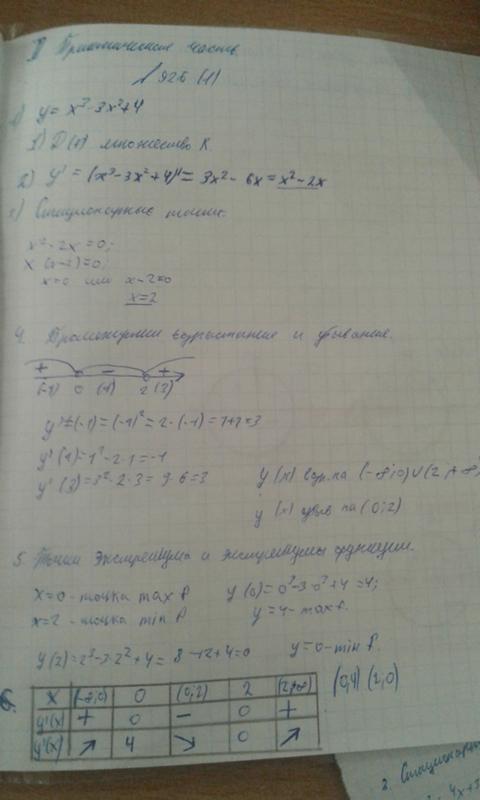 II Практическая часть
№ 926 (1)
1) y = x³-3x²+4
1) D(y) множество R
2) y' = (x³-3x²+4)' = 3x² - 6x = x²-2x
3) Стационарные точки:
x²-2x=0;
x (x-2)=0;
x=0 или x-2=0
x=2
4. Промежутки возрастание и убывание.
+ - +
(-1) 0 (1) 2 (3)
y'=(-1)=(-1)²=2·(-1)=1+2=3
y'(1)=1²-2·1=-1
y'(3)=3²-2·3=9-6=3
y(x) возр. на (-∞;0)∪(2;+∞)
y(x) убыв на (0;2)
5. Точки экстремума и экстремумы функции.
x=0-точка max f
x=2-точка min f
y(0)=0³-3·0²+4=4;
y=4-max f.
y(2)=2³-3·2²+4= 8-12+4=0
y=0-min f.
6.
x (-∞;0) 0 (0;2) 2 (2;+∞)
y'(x) + 0 - 0 +
y'(x) ↗ 4 ↘ 0 ↗
(0;4) (2;0)
2. Стационарн
4x+3